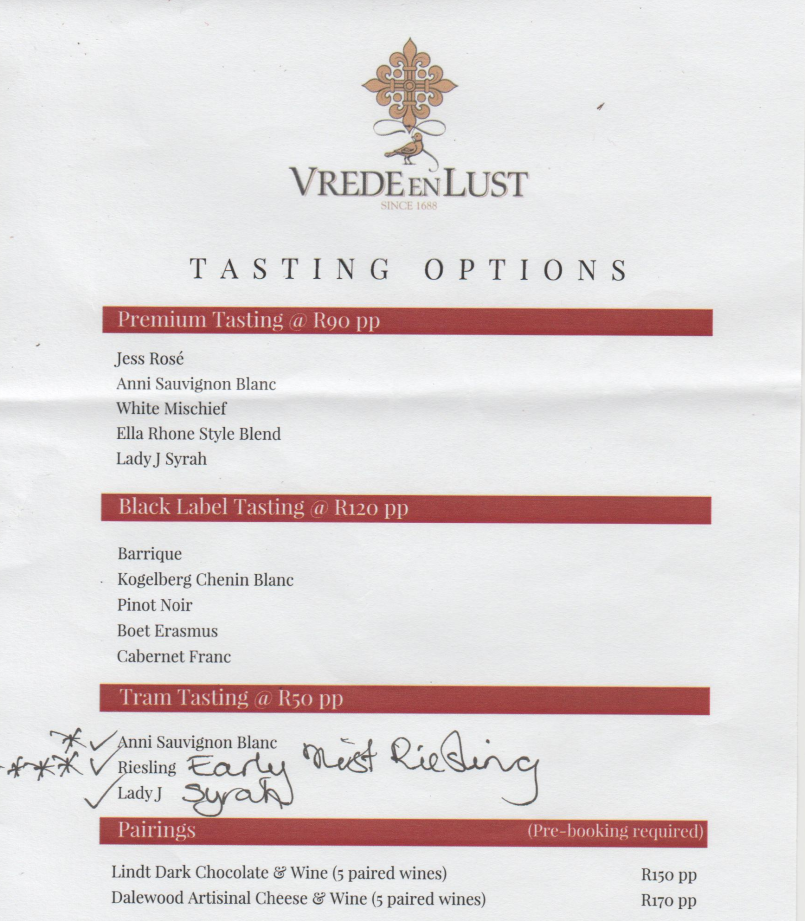 VREDE EN LUST
SINCE 1688
TASTING OPTIONS
Premium Tasting @ R90 pp
Jess Rosé
Anni Sauvignon Blanc
White Mischief
Ella Rhone Style Blend
Lady J Syrah
Black Label Tasting @ R120 pp
Barrique
Kogelberg Chenin Blanc
Pinot Noir
Boet Erasmus
Cabernet Franc
Tram Tasting @ R50 pp
* ✓ Anni Sauvignon Blanc
*** ✓ Riesling Early Mist Riesling
✓ Lady J Syrah
Pairings (Pre-booking required)
Lindt Dark Chocolate & Wine (5 paired wines) R150 pp
Dalewood Artisinal Cheese & Wine (5 paired wines) R170 pp